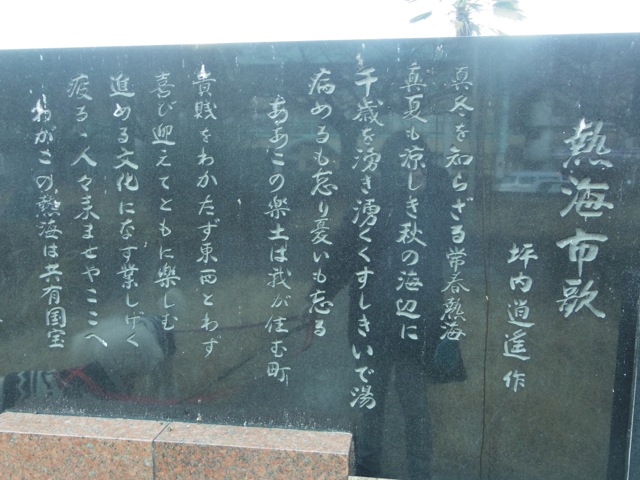 熱海市歌
坪内逍遙 作
真冬を知らざる常春熱海
真夏も涼しき秋の海辺に
千歳を湧き湧くくすしきいで湯
病めるも忘り憂いも忘る
ああこの楽土は我が住む町
貴賎をわかたず東西とわず
喜び迎えてともに楽しむ
進める文化になす業しげく
疲る、人々来ませやここへ
わがこの熱海は共有国宝